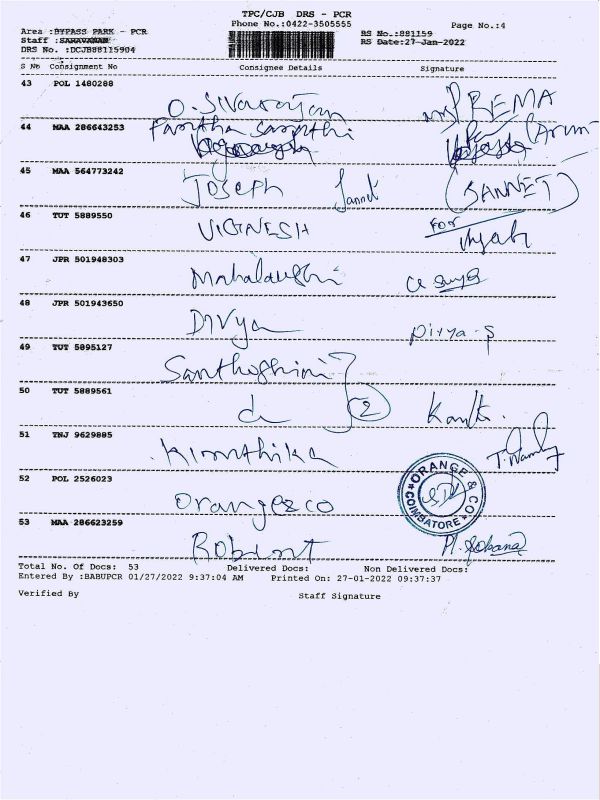 TPC/CJB DRS - PCR
Phone No.:0422-3505555
Page No.:4
Area :BYPASS PARK - PCR
RS No.:881159
Staff :SARAVANAN
RS Date:27-Jan-2022
DRS No. :DCJB88115904
S No Consignment No Consignee Details Signature
43 POL 1480288
O. Sivarajan PREMA
44 MAA 286643253
Partha Sarathi (Arun
45 MAA 564773242
JOSEPH Jannet (SANNET)
46 TUT 5889550
VIGNESH FOR
47 JPR 501948303
Mahalakshi
48 JPR 501943650
Divya Divya-S
49 TUT 5895127
Santhoshini
50 TUT 5889561
do (2)
51 TNJ 9629885
Kiruthika
52 POL 2526023
Orange & co
ORANGE & CO.
COIMBATORE
53 MAA 286623259
Robert
Total No. Of Docs: 53 Delivered Docs: Non Delivered Docs:
Entered By :BABUPCR 01/27/2022 9:37:04 AM Printed On: 27-01-2022 09:37:37
Verified By Staff Signature